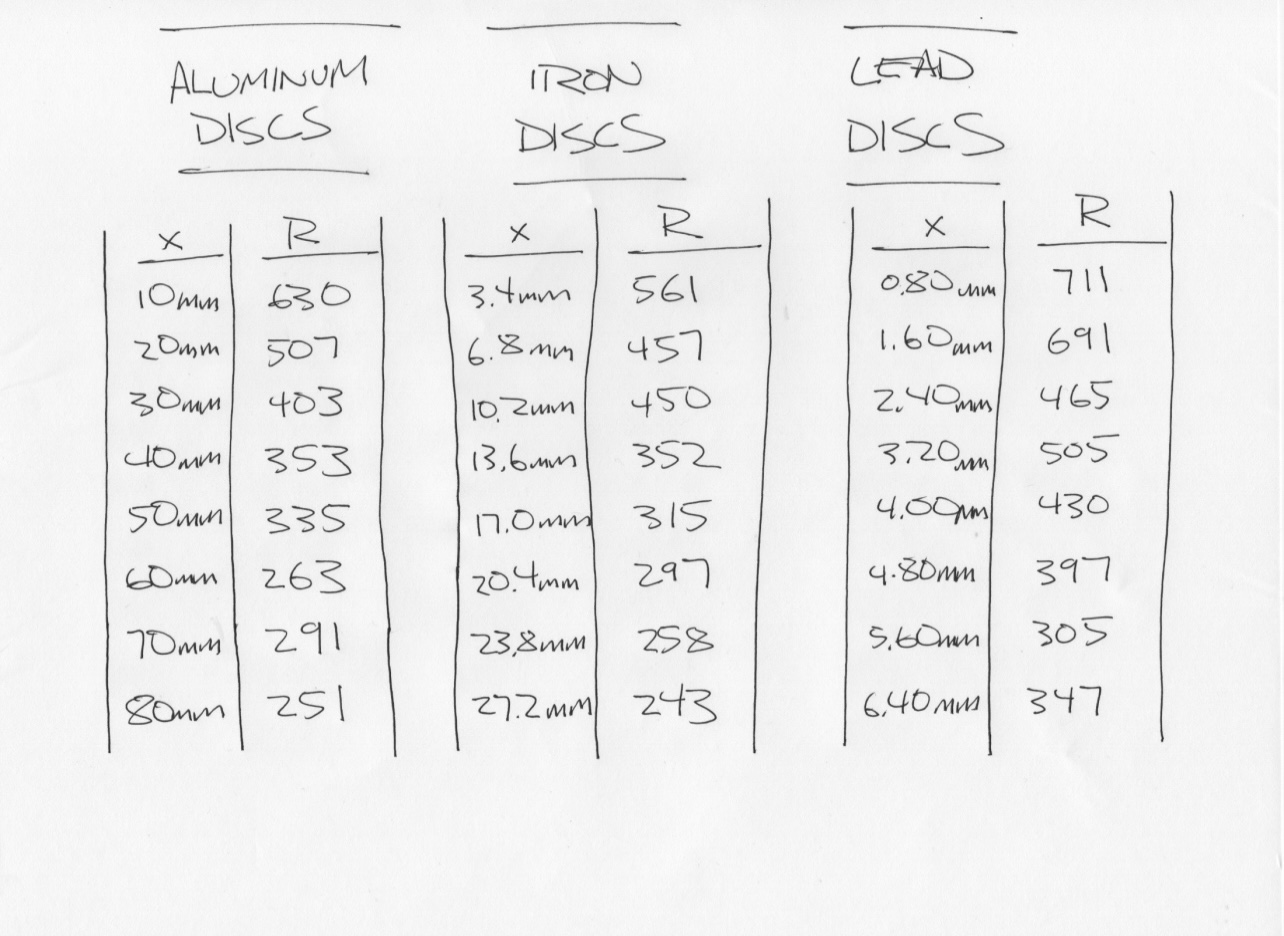 ALUMINUM DISCS
x R
10mm 630
20mm 507
30mm 403
40mm 353
50mm 335
60mm 263
70mm 291
80mm 251
IRON DISCS
x R
3.4mm 561
6.8mm 457
10.2mm 450
13.6mm 352
17.0mm 315
20.4mm 297
23.8mm 258
27.2mm 243
LEAD DISCS
x R
0.80mm 711
1.60mm 691
2.40mm 465
3.20mm 505
4.00mm 430
4.80mm 397
5.60mm 305
6.40mm 347